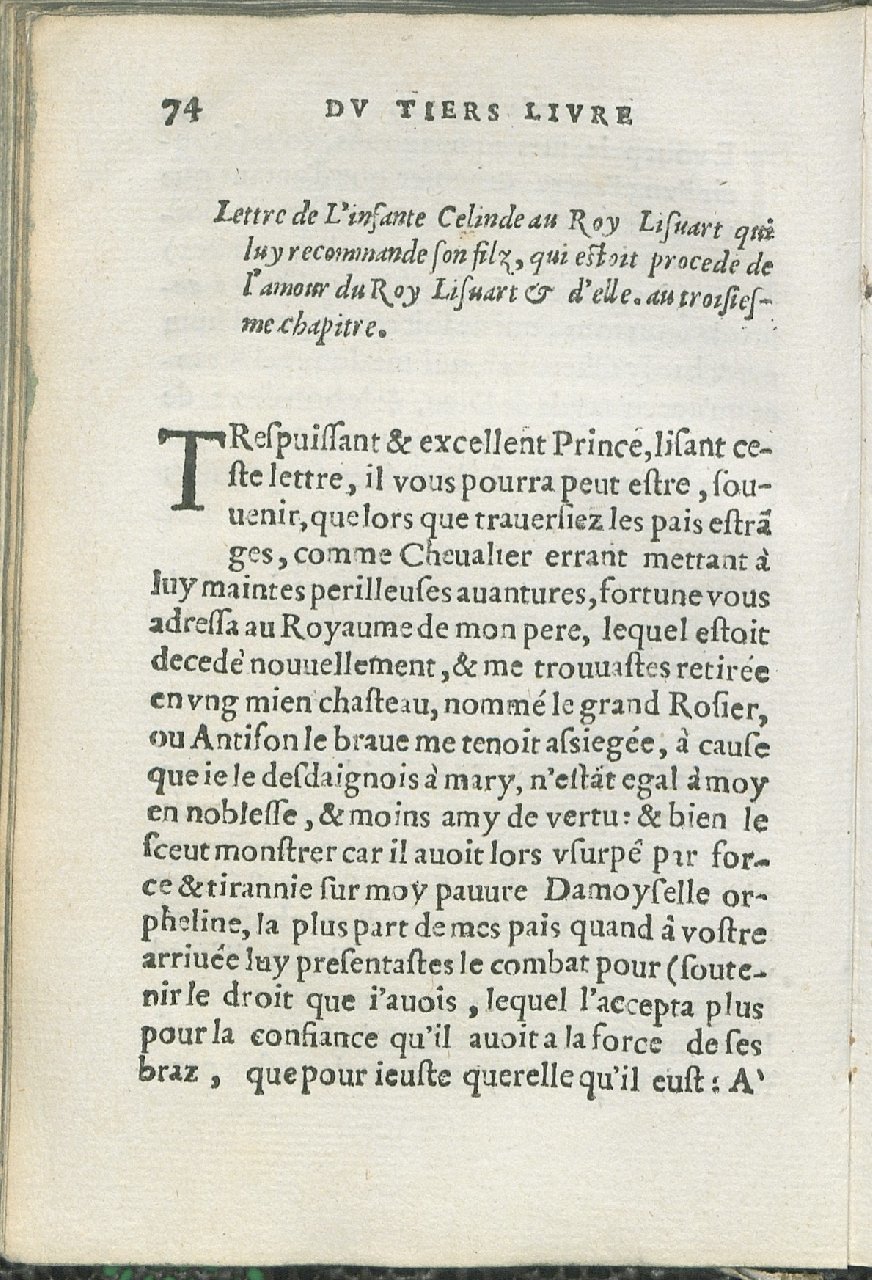 74 DV TIERS LIVRE
Lettre de L'infante Celinde au Roy Liſuart qui
luy recommande ſon filz, qui eſtoit procedé de
l'amour du Roy Liſuart & d'elle. au troiſieſ-
me chapitre.
TReſpuiſſant & excellent Prince, liſant ce-
ſte lettre, il vous pourra peut eſtre, ſou-
uenir, que lors que trauerſiez les pais eſtrã
ges, comme Cheualier errant mettant à
luy maintes perilleuſes auantures, fortune vous
adreſſa au Royaume de mon pere, lequel eſtoit
decedè nouuellement, & me trouuaſtes retirée
en vng mien chaſteau, nommé le grand Roſier,
ou Antifon le braue me tenoit aſsiegée, à cauſe
que ie le deſdaignois à mary, n'eſtãt egal à moy
en nobleſſe, & moins amy de vertu: & bien le
ſceut monſtrer car il auoit lors vſurpé par for-
ce & tirannie ſur moy pauure Damoyſelle or-
pheline, la plus part de mes pais quand à voſtre
arriuée luy preſentaſtes le combat pour (ſoute-
nir le droit que i'auois, lequel l'accepta plus
pour la confiance qu'il auoit a la force de ſes
braz, que pour ieuſte querelle qu'il euſt: A'